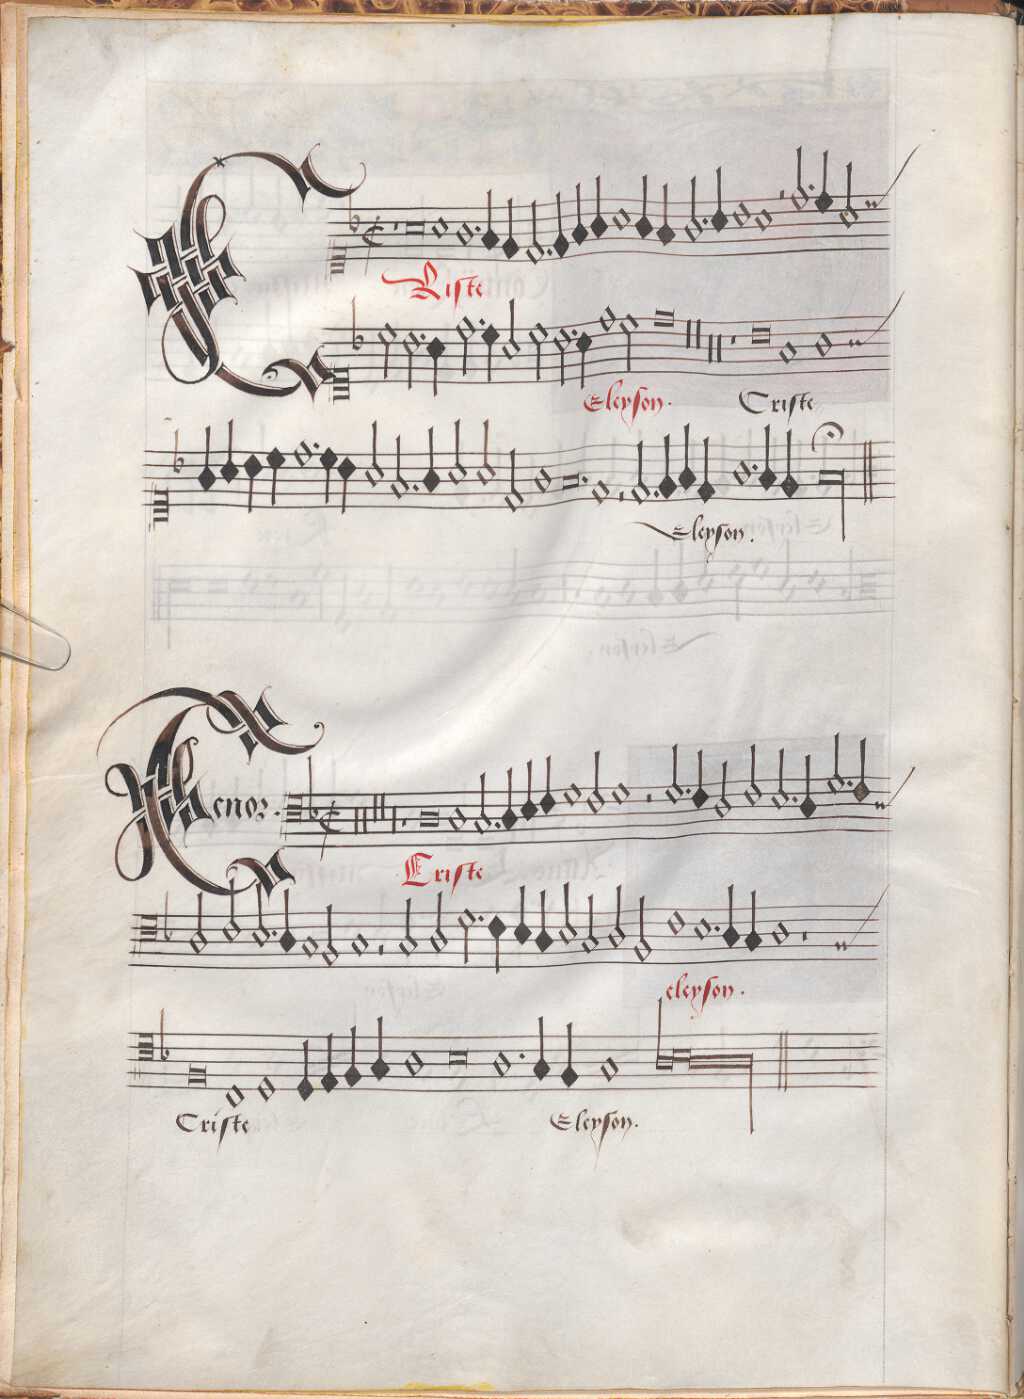 Criste
Eleyson. Criste
Eleyson.
Tenor.
Criste
eleyson.
Criste Eleyson.